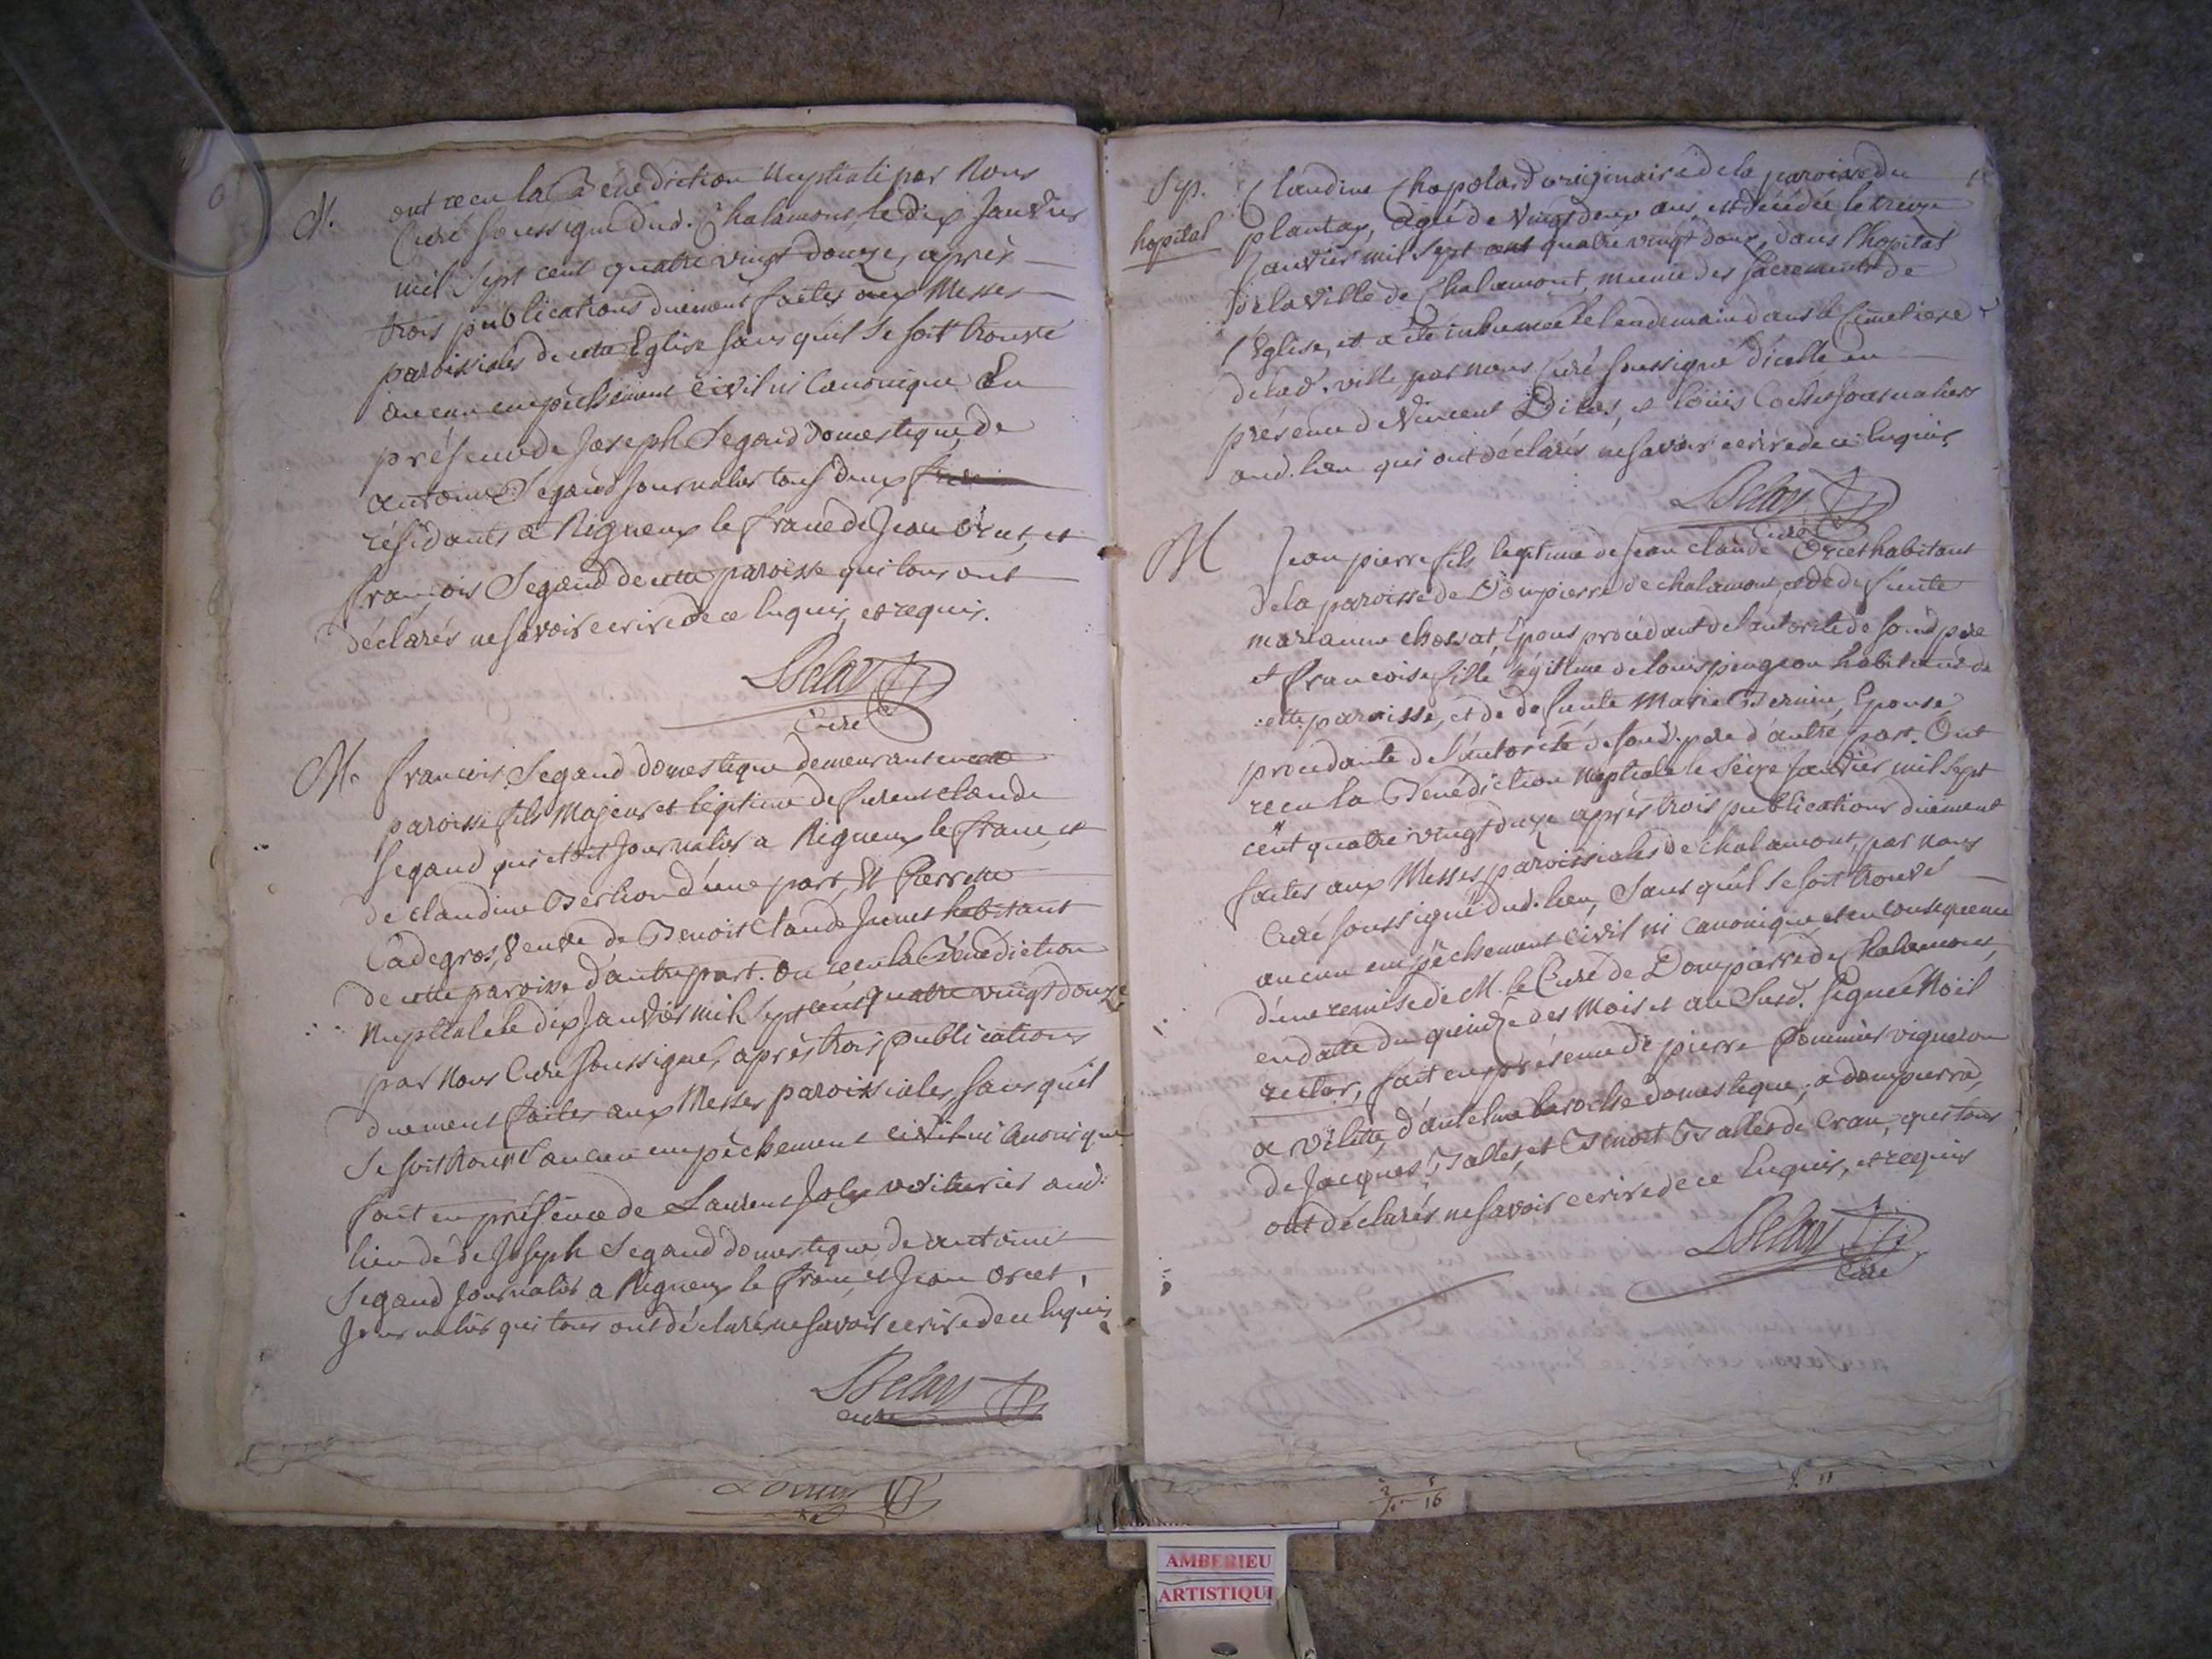 M. ont recu la Bénédiction Nuptiale par Nous
Curé soussigné dud. Chalamont, le dix Janvier
mil sept cent quatre vingt douze, après
trois publications duement faites aux Messes
paroissiales de cette Eglise sans qu'il se soit trouvé
aucun empêchement civil ni Canonique En
présence de Joseph Segaud domestique, de
antoine Segaud Journalier tous deux
résidants a Rigneux le franc de Jean Orcet, et
françois Segaud de cette paroisse qui tous ont
déclarés ne savoir ecrire de ce Enquis, et requis.
Curé
M. françois Segaud domestique demeurant en cette
paroisse fils Majeur et légitime de furent claude
Segaud qui etoit Journalier a Rigneux le franc, et
de claudine Berlion d'une part, Et Pierrette
Cadegros, Veuve de Benoit Claude Juenet habitant
de cette paroisse d'autre part. On recu la Bénédiction
Nuptiale le dix Janvier mil Sept cent quatre vingt douze
par Nous Curé soussigné, après trois publications
duement faites aux Messes paroissiales, sans quil
se soit trouvé aucun empêchement civil ni Canonique
fait en présence de Laurent Joly voiturier aud.
lieu de de Joseph Segaud domestique de antoine
Segaud Journalier a Rigneux le franc, et Jean Orcet,
Journalier qui tous ont déclaré ne savoir ecrire de ce Enquis
curé
Sep. Claudine Chapolard originaire de la paroisse du
hopital plantay, agée de Vingt deux ans, est décédée le treize
Janvier mil Sept cent quatre vingt douze, dans l'hopital
de la Ville de Chalamont, munie des sacrements de
l'Eglise, et a été inhumée le lendemain dans le Cimetiere
de lad. ville, par nous Curé soussigné d'icelle en
présence de Vincent et Louis Cochet Journaliers
aud. lieu qui ont déclarés ne savoir ecrire de ce Enquis
Curé
M Jean pierre fils legitime de Jean claude Orcet habitant
de la paroisse de Dompierre de chalamont, et de defunte
marianne chossat, Epoux procédant de l'autorité de son d. père
et françoise fille légitime de louis pingeon habitant de
cette paroisse, et de defunte Marie Bernin, Epouse
procedante de l'autorité de son d. pere d'autre part. Ont
recu la Bénédiction Nuptiale le Seize Janvier mil Sept
cent quatre vingt douze après trois publications duement
faites aux Messes paroissiales de chalamont, par nous
Curé soussigné dud. lieu, Sans qu'il se soit trouvé
aucun empêchement civil ni canonique, et en consequence
d'une remise de M. le Curé de Dompierre de Chalamont,
en datte du quinze des Mois et an Susd. Signée Noël
rector, fait en présence de pierre pommier vigneron
a Vilette, d'antelme baroche domestique, a dompierre,
de Jacques Ballet, et Benoit Ballet de Cran, qui tous
ont déclarés ne savoir ecrire de ce Enquis, et requis
Curé
16
AMBERIEU
ARTISTIQU